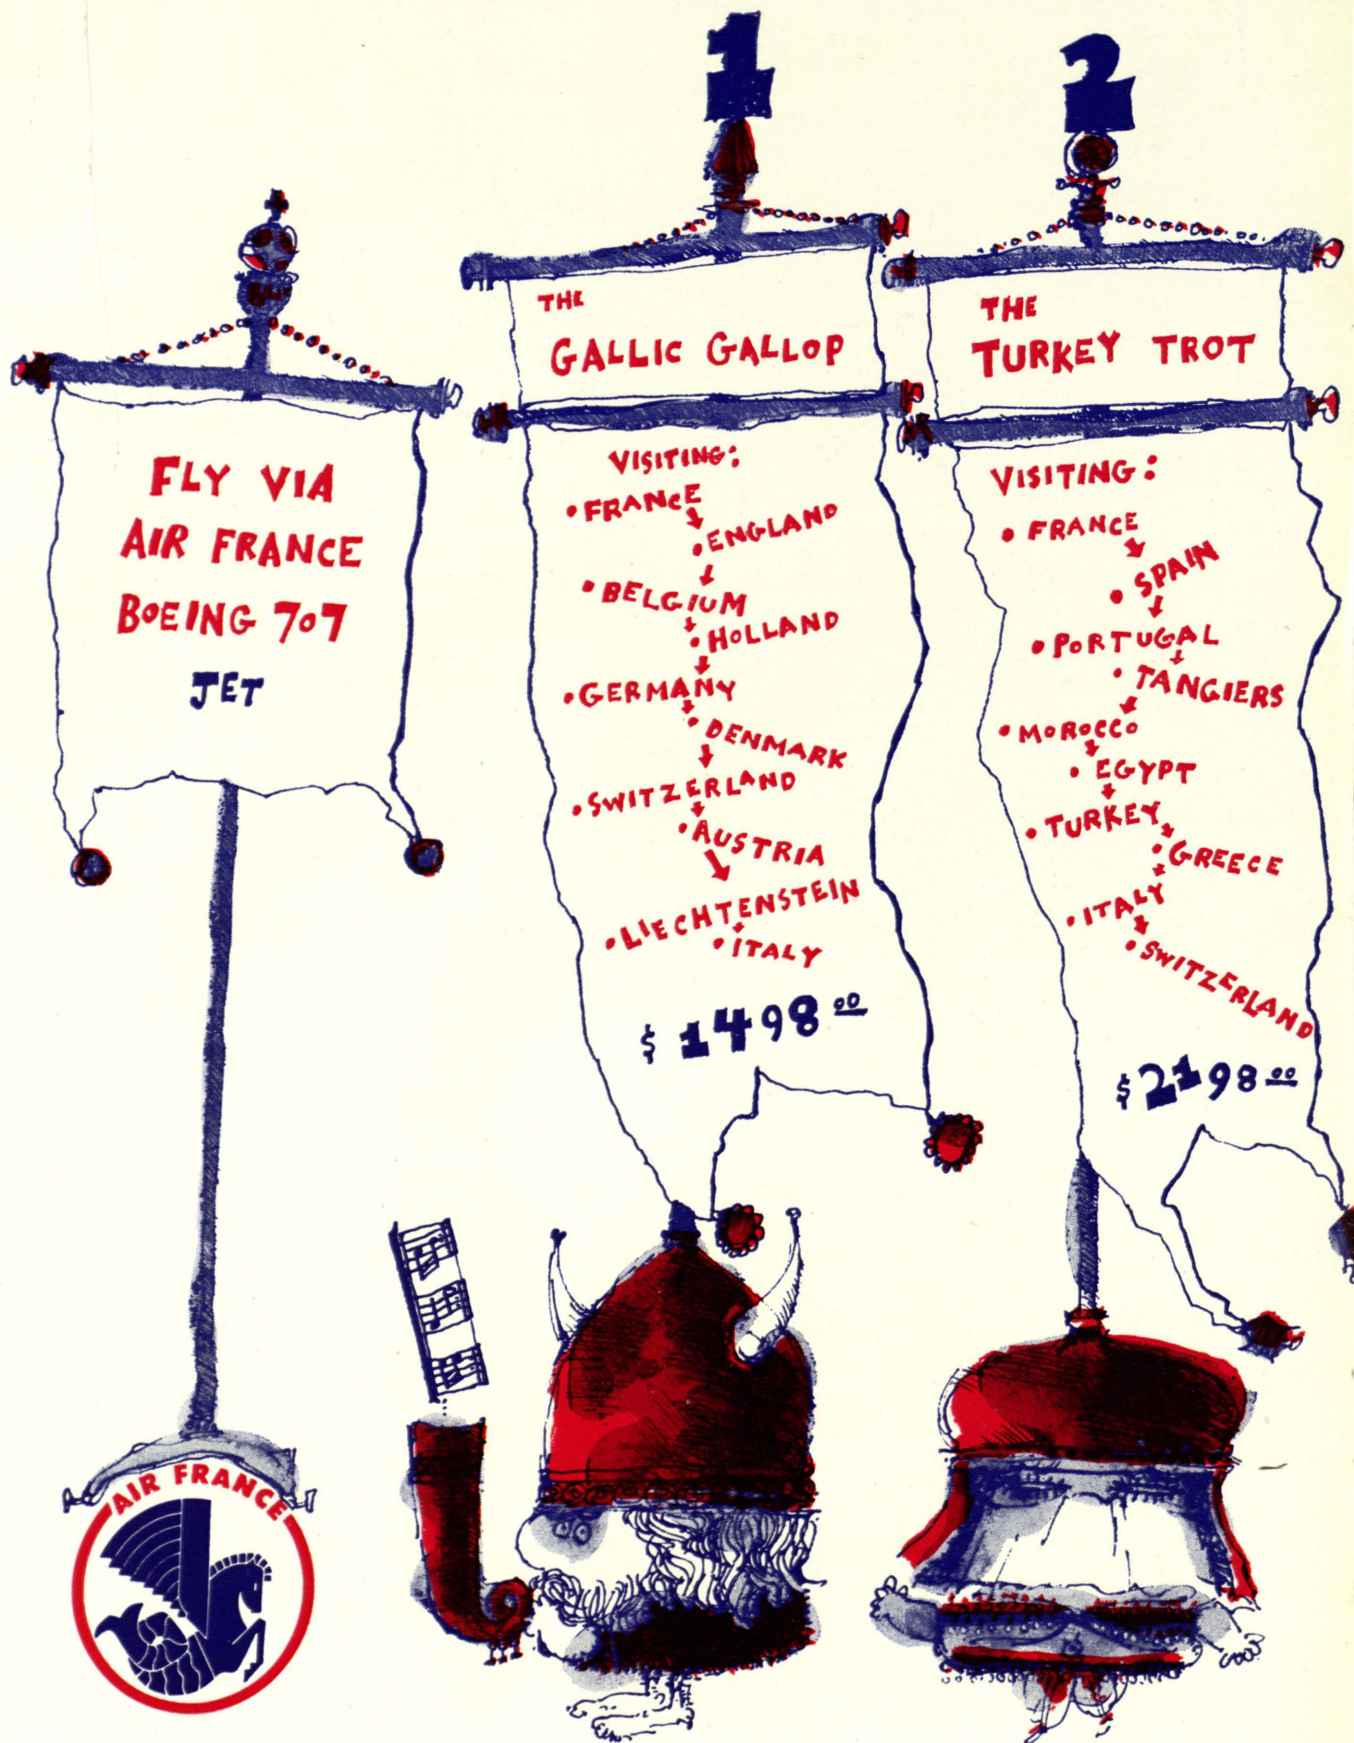 FLY VIA
AIR FRANCE
BOEING 707
JET
AIR FRANCE
1
THE
GALLIC GALLOP
VISITING:
• FRANCE
• ENGLAND
• BELGIUM
• HOLLAND
• GERMANY
• DENMARK
• SWITZERLAND
• AUSTRIA
• LIECHTENSTEIN
• ITALY
$1498.00
2
THE
TURKEY TROT
VISITING:
• FRANCE
• SPAIN
• PORTUGAL
• TANGIERS
• MOROCCO
• EGYPT
• TURKEY
• GREECE
• ITALY
• SWITZERLAND
$2198.00